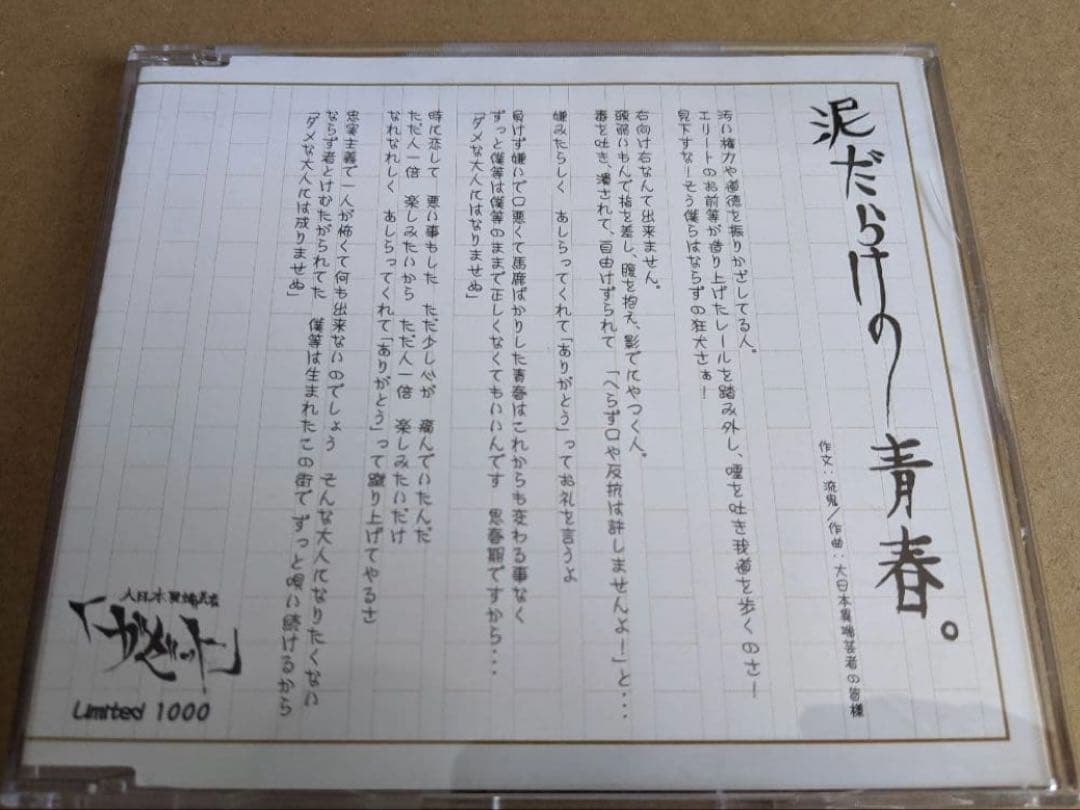 泥だらけの青春。
作文：流鬼／作曲：大日本異端芸者の皆様
汚い権力や道徳を振りかざしてる人。
エリートのお前等が造り上げたレールを踏み外し、唾を吐き我道を歩くのさー
見下すな！そう僕らはならずの狂犬さぁ！
右向け右なんて出来ません。
頭弱いもんで指を差し、腹を抱え、影でにやつく人。
毒を吐き、潰されて、自由けずられて 「へらず口や反抗は許しませんよ！」と・・・
嫌みたらしく あしらってくれて「ありがとう」ってお礼を言うよ
負けず嫌いで口悪くて馬鹿ばかりした青春はこれからも変わる事なく
ずっと僕等は僕等のままで正しくなくてもいいんです 思春期ですから・・・
「ダメな大人にはなりませぬ」
時に恋して 悪い事もした ただ少し心が 痛んでいたんだ
ただ人一倍 楽しみたいから ただ人一倍 楽しみたいだけ
なれなれしく あしらってくれて「ありがとう」って蹴り上げてやるさ
忠実主義で一人が怖くて何も出来ないのでしょう そんな大人になりたくない
ならず者とけむたがられてた 僕等は生まれたこの街でずっと唄い続けるから
「ダメな大人には成りませぬ」
大日本異端芸者
「ガゼット」
Limited 1000